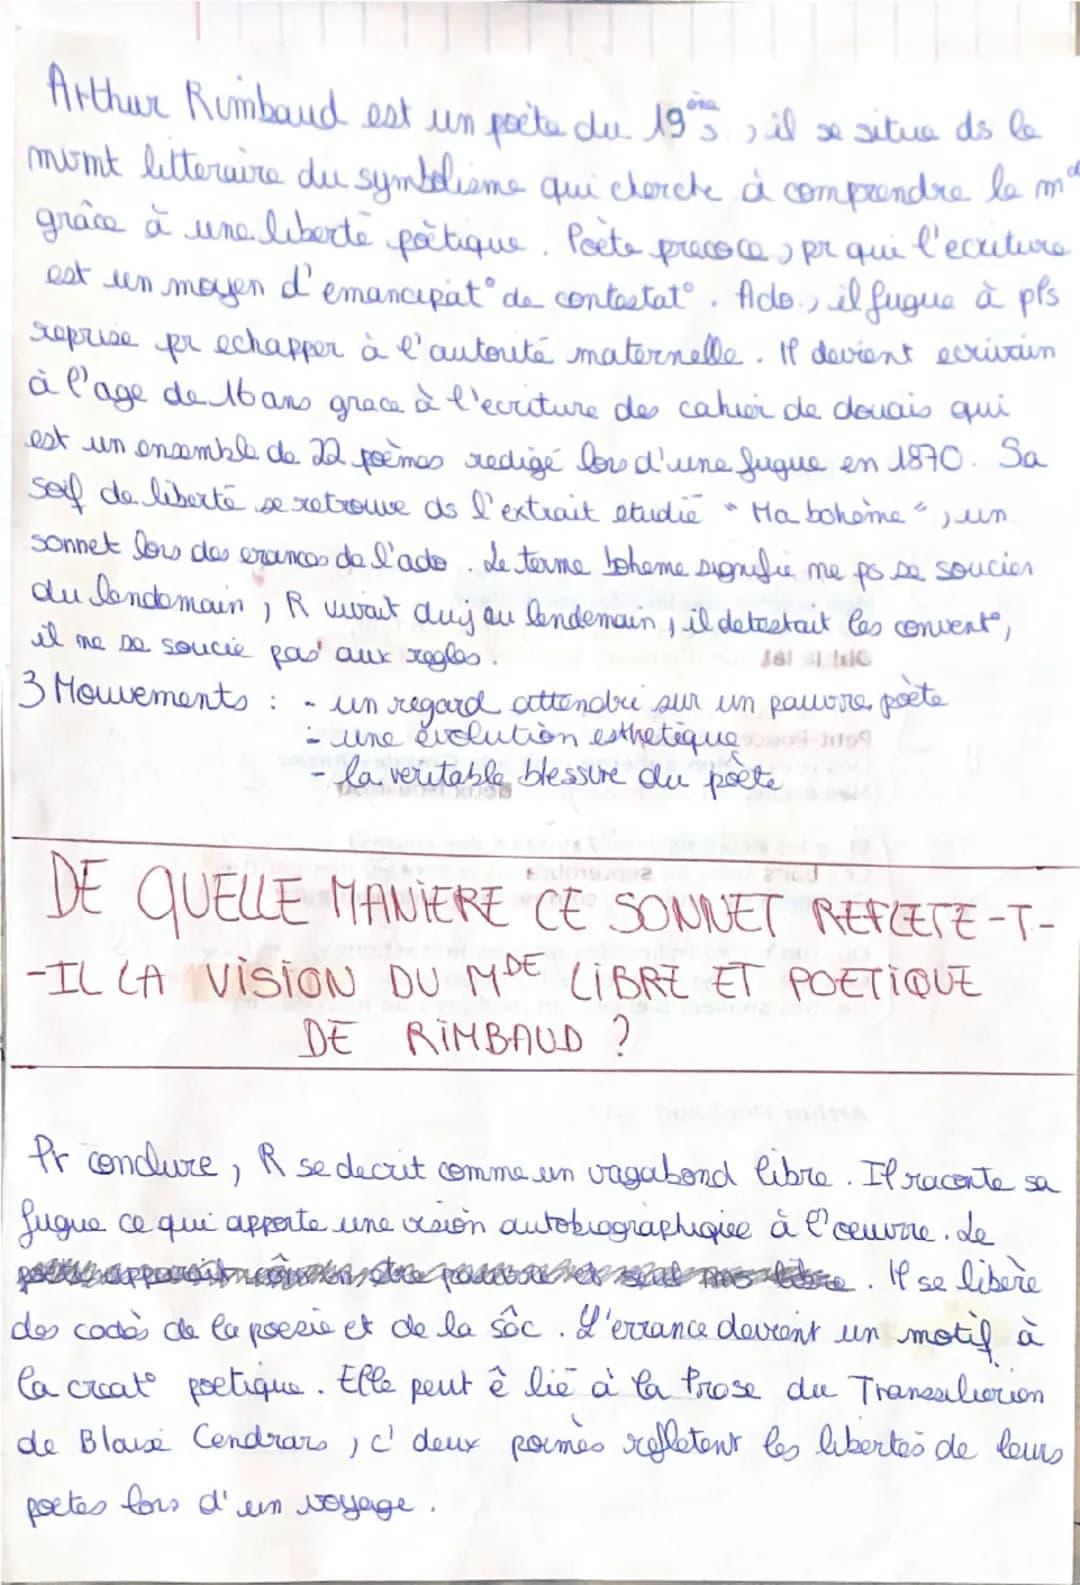 Arthur Rimbaud est un poète du 19ème s., il se situe ds le
mvmt litteraire du symbolisme qui cherche à comprendre le md
grâce à une liberté poètique. Poète precoce, pr qui l'ecriture
est un moyen d'emancipat° de contestat°. Ado., il fugue à pls
reprise pr echapper à l'autorité maternelle. Il devient ecrivain
à l'age de 16 ans grace à l'ecriture des cahier de douais qui
est un ensemble de 22 poèmes redigé lors d'une fugue en 1870. Sa
soif de liberté se retrouve ds l'extrait etudié "Ma bohème", un
sonnet lors des erances de l'ado. Le terme boheme signifie ne ps se soucier
du lendemain, R vivait du j au lendemain, il detestait les convent°,
il ne se soucie pas aux regles.
3 Mouvements : - un regard attendri sur un pauvre poète
- une évolution esthetique
- la veritable blessure du poète
DE QUELLE MANIERE CE SONNET REFLETE-T-
-IL LA VISION DU MDE LIBRE ET POETIQUE
DE RIMBAUD ?
Pr conclure, R se decrit comme un vagabond libre. Il raconte sa
fugue ce qui apporte une vision autobiographique à l'oeuvre. Le
. Il se libère
des codes de la poesie et de la sôc. L'errance devient un motif à
la creat° poetique. Elle peut ê lié à la Prose du Transsiberien
de Blaise Cendrars, c' deux poèmes refletent les libertés de leurs
poetes lors d'un voyage.